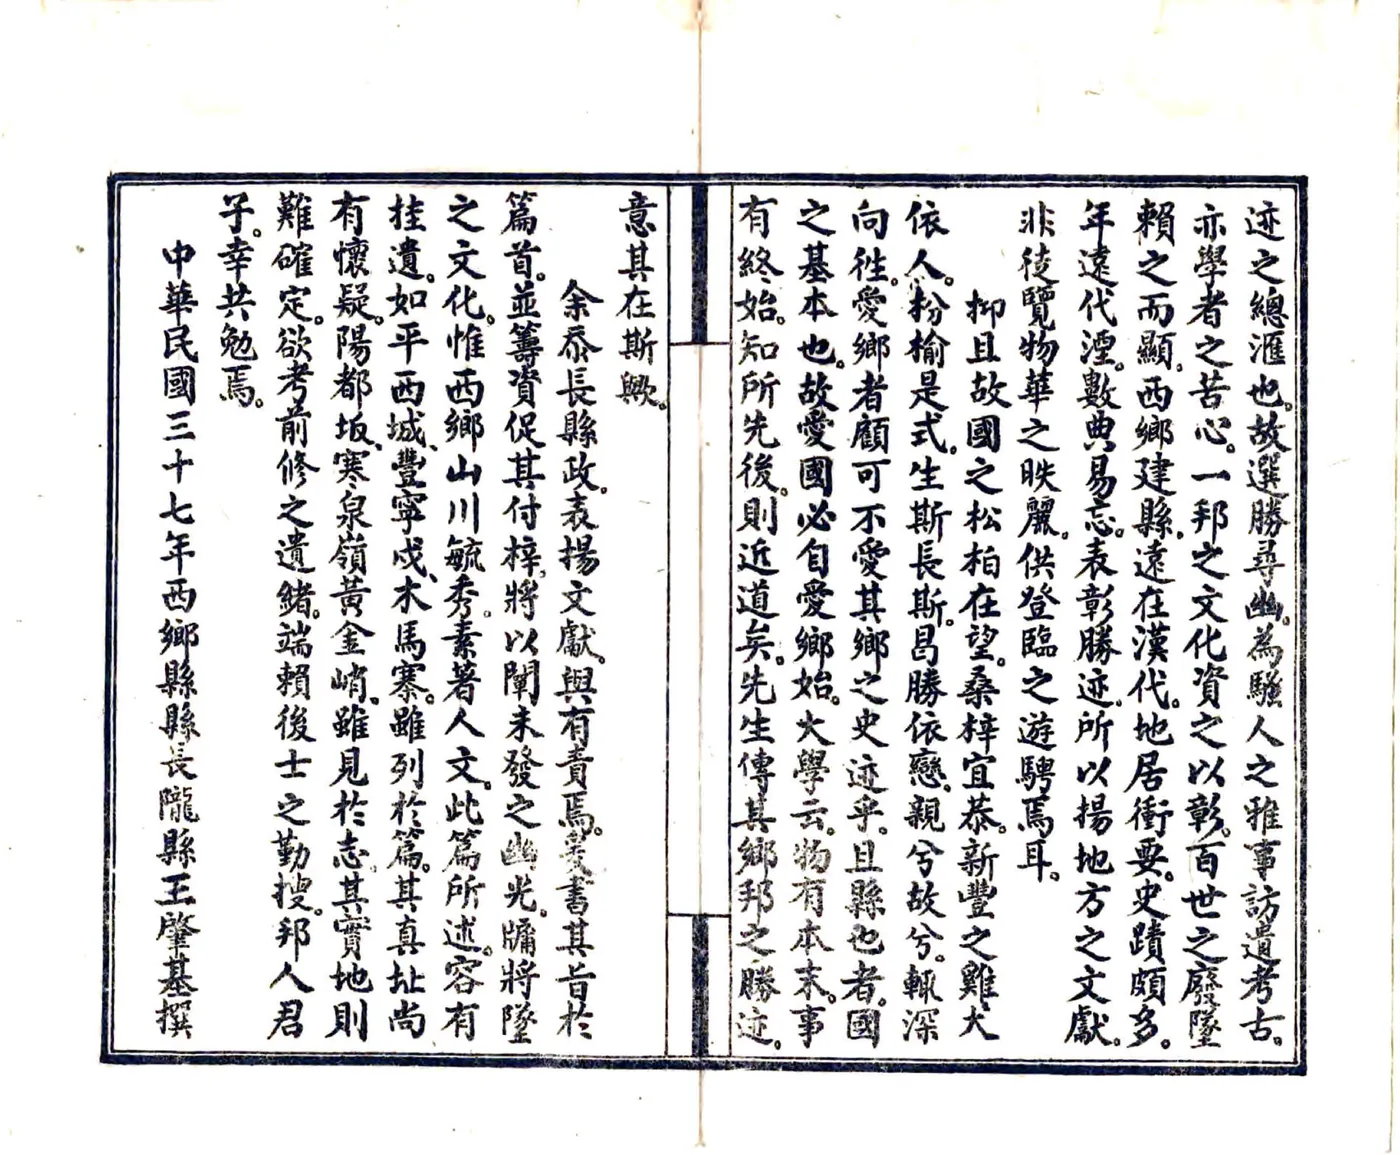 迹之總滙也。故選勝尋幽。為騷人之雅事。訪遺考古。
亦學者之苦心。一邦之文化資之以彰。百世之廢墜
賴之而顯。西鄉建縣。遠在漢代。地居衝要。史蹟頗多。
年遠代湮。數典易忘。表彰勝迹。所以揚地方之文獻。
非徒覽物華之昳麗。供登臨之遊騁焉耳。
抑且故國之松柏在望。桑梓宜恭。新豐之雞犬
依人。枌榆是式。生斯長斯。曷勝依戀。親兮故兮。輒深
向徃。愛鄉者顧可不愛其鄉之史迹乎。且縣也者。國
之基本也。故愛國必自愛鄉始。大學云。物有本末。事
有終始。知所先後。則近道矣。先生傳其鄉邦之勝迹。
意其在斯歟。
余忝長縣政。表揚文獻。與有責焉。爰書其旨於
篇首。並籌資促其付梓。將以闡未發之幽光。牖將墜
之文化。惟西鄉山川毓秀。素著人文。此篇所述。容有
挂遺。如平西城、豐寧戍、木馬寨。雖列於篇。其真址尚
有懷疑。陽都坂、寒泉嶺黃金峭。雖見於志。其實地則
難確定。欲考前修之遺緒。端賴後士之勤搜。邦人君
子。幸共勉焉。
中華民國三十七年西鄉縣縣長隴縣王肇基撰